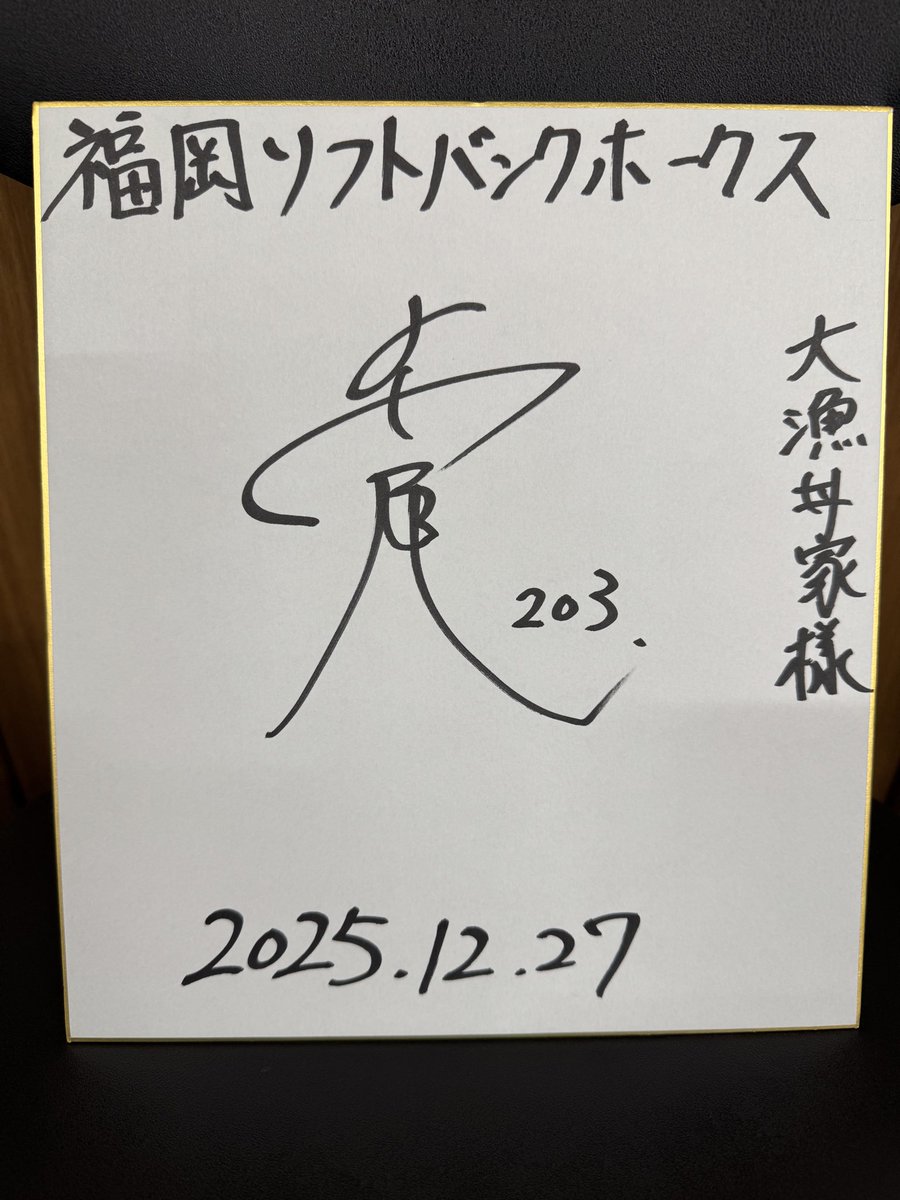 福岡ソフトバンクホークス
大漁丼家様
203.
2025.12.27